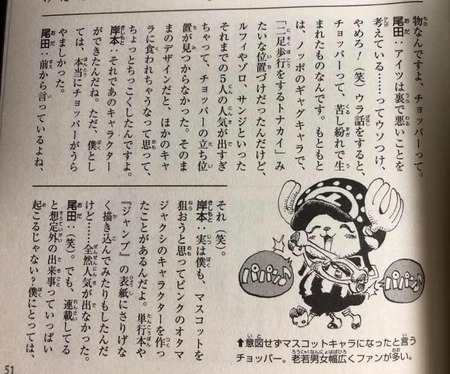 物なんですよ、チョッパーって。
尾田：アイツは裏で悪いことを
考えている……ってウソつけ、
やめろ！（笑）ウラ話をすると、
チョッパーって、苦し紛れで生
まれたものなんです。もともと
は、ノッポのギャグキャラで、
「二足歩行をするトナカイ」み
たいな位置づけだったんだけど、
ルフィやゾロ、サンジといった
それまでの5人の人気が出すぎ
ちゃって、チョッパーの立ち位
置が見つからなかった。そのま
まのデザインだと、ほかのキャ
ラに食われちゃうなって思って、
ちょっとちっこくしたんですよ。
岸本：それであのキャラクター
ができたんだね。ただ、僕とし
ては、本当にチョッパーがうら
やましかった。
尾田：前から言っているよね、
それ（笑）。
岸本：実は僕も、マスコットを
狙おうと思ってピンクのオタマ
ジャクシのキャラクターを作っ
たことがあるんだよ。単行本や
『ジャンプ』の表紙にさりげな
く描き込んでみたりもしたんだ
けど……全然、人気が出なかった。
尾田：（笑）。でも、連載してる
と想定外の出来事っていっぱい
起こるじゃない？僕にとっては、
パパパン♪
パパパン♪
⬆意図せずマスコットキャラになったと言う
チョッパー。老若男女幅広くファンが多い。
51